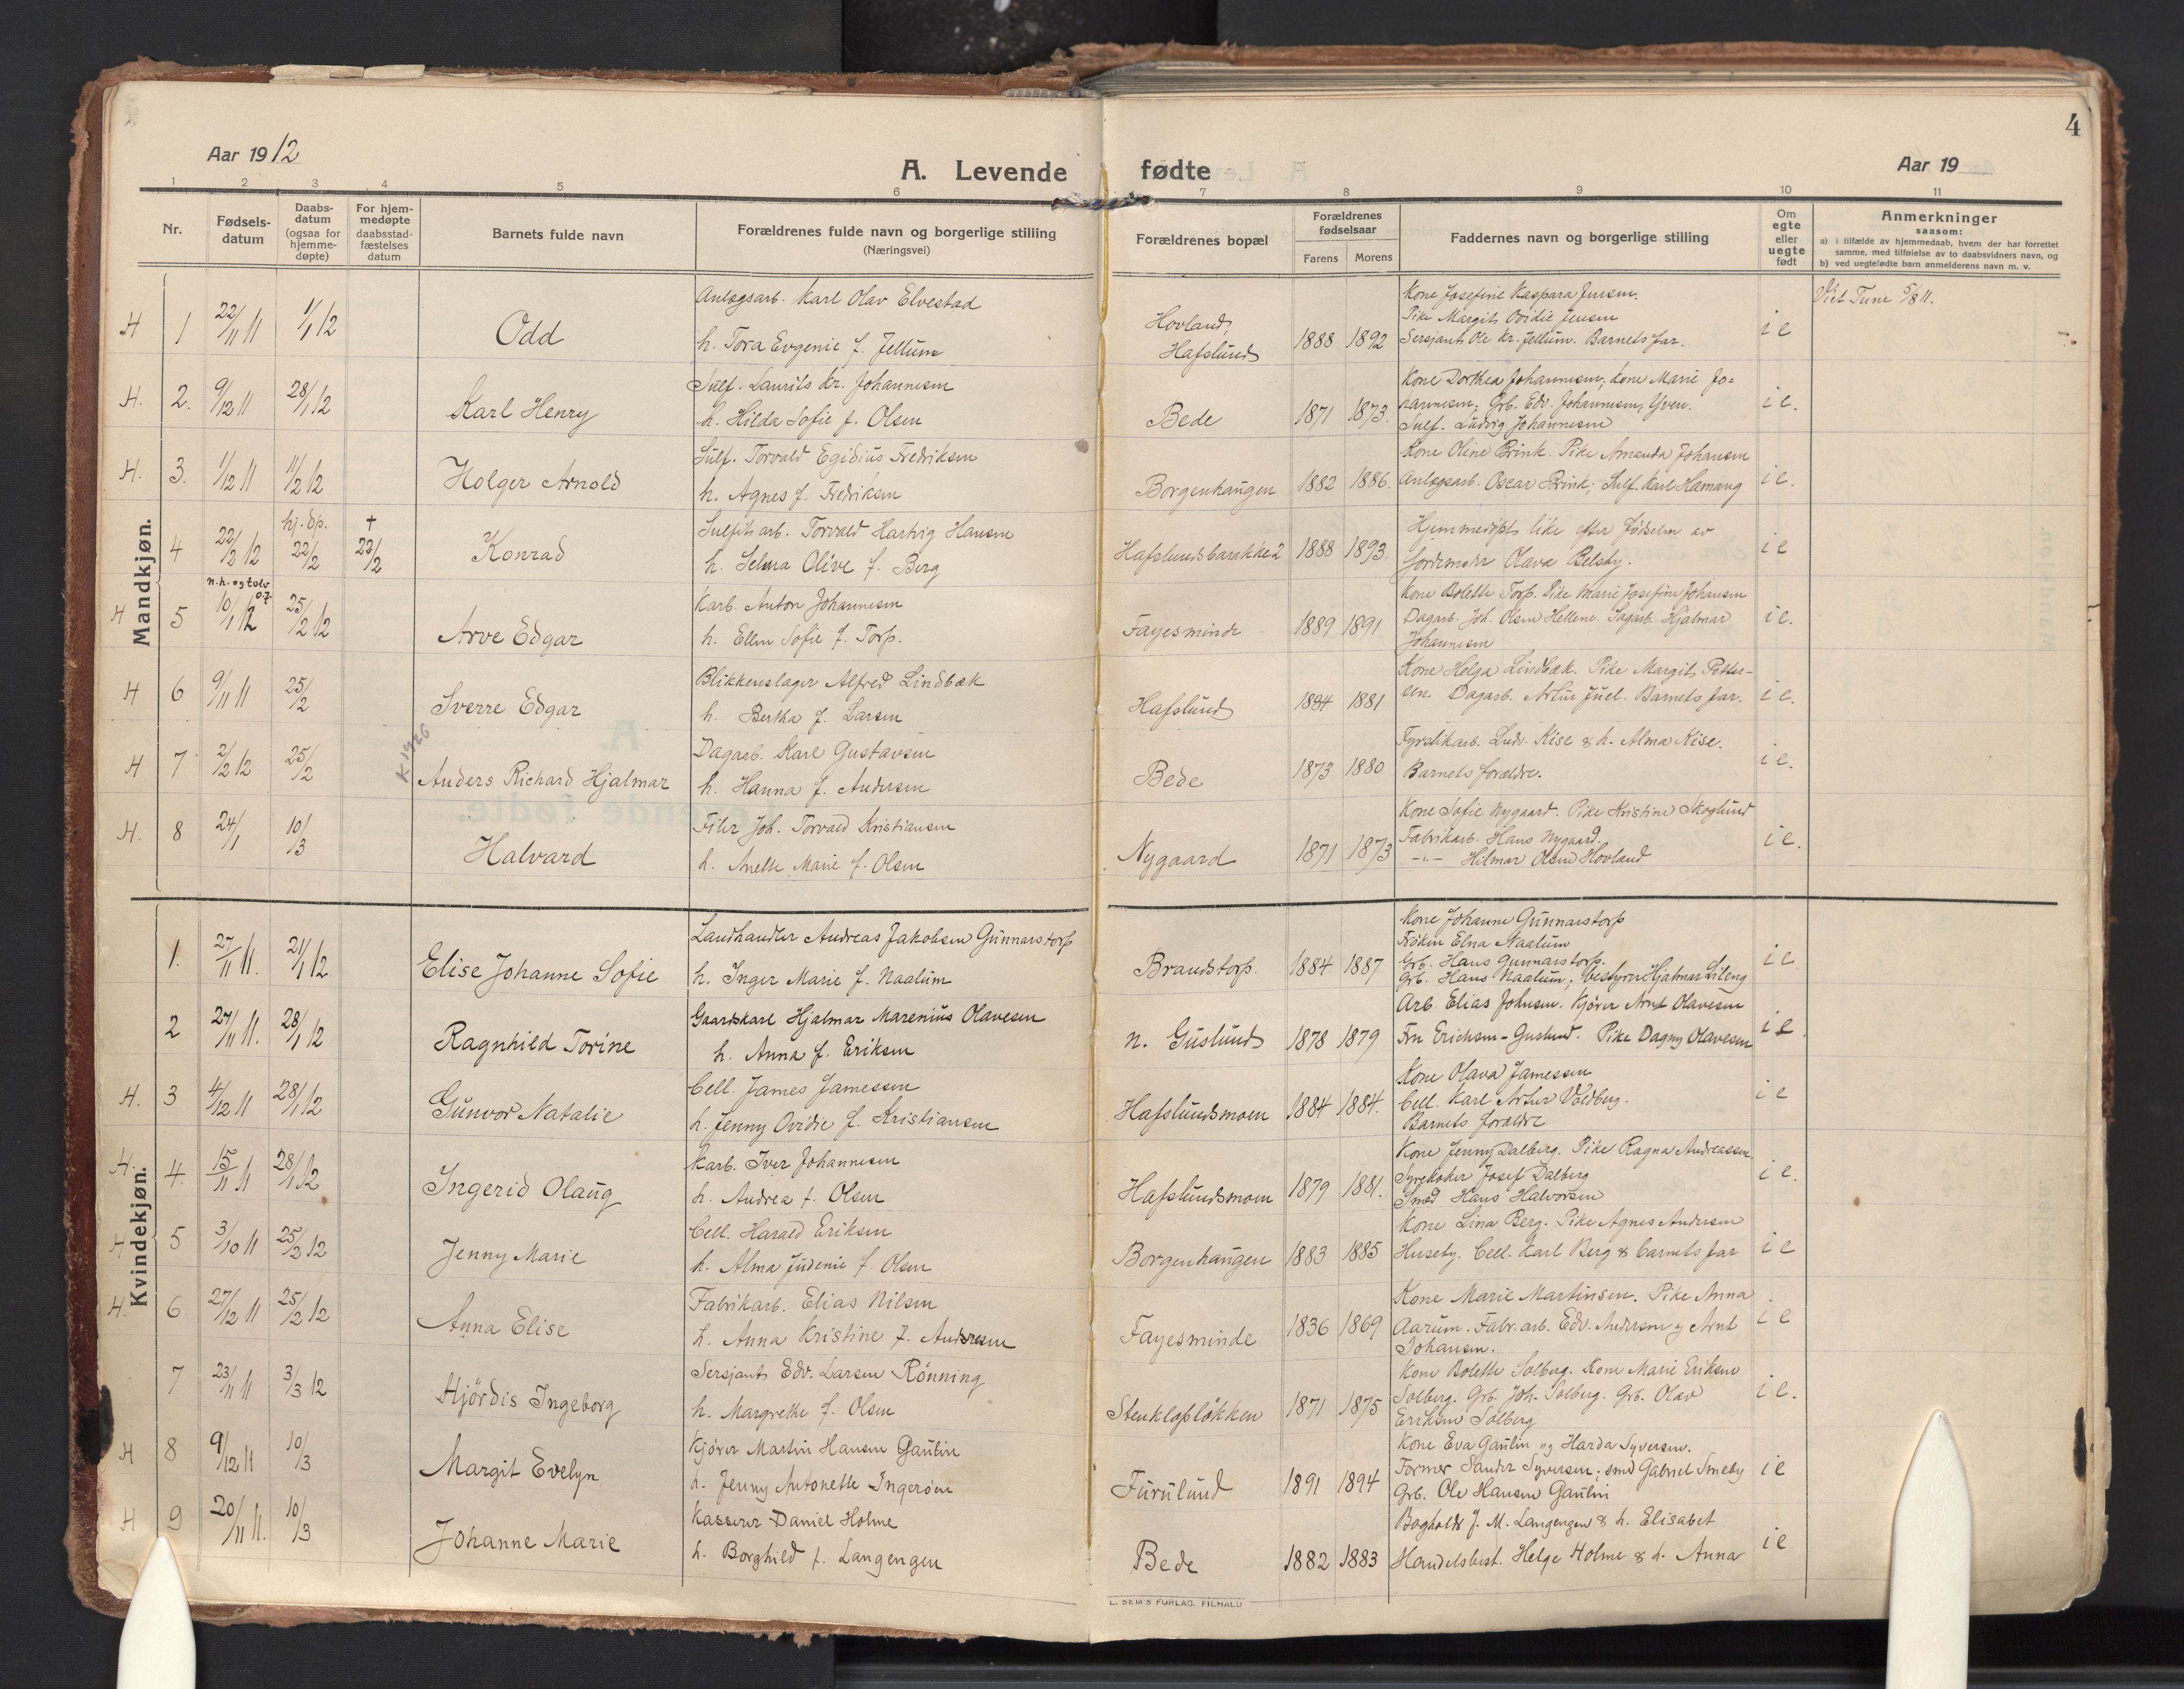 4
Aar 1912
A. Levende fødte
Aar 19
1 2 3 4 5 6 7 8 9 10 11
Nr.
Fødsels-
datum
Daabs-
datum
(ogsaa for
hjemme-
døpte)
For hjem-
medøpte
daabsstad-
fæstelses
datum
Barnets fulde navn
Forældrenes fulde navn og borgerlige stilling
(Næringsvei)
Forældrenes bopæl
Forældrenes
fødselsaar
Farens Morens
Faddernes navn og borgerlige stilling
Om
egte
eller
uegte
født
Anmerkninger
saasom:
a) i tilfælde av hjemmedaab, hvem der har forrettet
samme, med tilføielse av to daabsvidners navn, og
b) ved uegtefødte barn anmelderens navn m. v.
Mandkjøn.
H 1 22/11 11 1/1 12 Odd
Anlægsarb. Karl Olav Elvestad
h. Tora Evgenie f. Jellum
Hovland,
Hafslund
1888 1892
Kone Josefine Kaspara Jensen.
Pike Margit Ovidie Jensen
Sersjant Ole Kr. Jellum. Barnets far.
i e
Viet Tune 5/8 11.
H. 2. 9/12 11 28/1 12 Karl Henry
Sulf. Laurits Kr. Johannesen
h. Hilda Sofie f. Olsen
Bede 1871 1873.
Kone Dorthea Johannesen, kone Marie Jo=
hannesen, Grb. Edv. Johannesen, Yven.
Sulf. Ludvig Johannesen
i e.
H. 3. 1/12 11 11/2 12 Holger Arnold
Sulf. Torvald Egidius Fredriksen
h. Agnes f. Fredriksen
Borgenhaugen 1882 1886.
Kone Oline Brink. Pike Amanda Johansen
Anlægsarb. Oscar Brink; Sulf. Karl Hamang
i e.
4 22/2 12 hj. dp. 22/2 † 22/2 Konrad
Sulfitarb. Torvald Hartvig Hansen
h. Selma Olive f. Berg
Hafslundsbarakke 2 1888 1893.
Hjemmedøpt like efter fødselen av
jordemoder Olava Belsby.
i e
n. h. og tolv
H 5 10/1 12 25/2 12 Arve Edgar
Karb. Anton Johannesen
h. Ellen Sofie f. Torp.
Fayesminde 1889 1891
Kone Bolette Torp. Pike Marie Josefine Johansen
Dagarb. Joh. Olsen Hellene. Sagarb. Hjalmar
Johannesen
i e.
H 6 9/11 11 25/2 Sverre Edgar
Blikkenslager Alfred Lindbæk
h. Bertha f. Larsen
Hafslund 1884 1881
Kone Helga Lindbæk. Pike Margit Petter-
sen. Dagarb. Artur Juel. Barnets far.
i e.
K 1926
H 7 2/2 12 25/2 Anders Richard Hjalmar
Dagarb. Karl Gustavsen
h. Hanna f. Andersen
Bede 1873 1880
Fyrstikarb. Ludv. Kise & h. Alma Kise.
Barnets forældre.
i e.
H. 8 24/1 10/3 Halvard
Filer Joh. Torvald Kristiansen
h. Anette Marie f. Olsen
Nygaard 1871 1873
Kone Sofie Nygaard. Pike Kristine Skoglund
Fabrikarb. Hans Nygaard.
-"- Hilmar Olsen Hovland
i e.
Kvindekjøn.
1. 27/11 11. 21/1 12 Elise Johanne Sofie
Landhandler Andreas Jakobsen Gunnarstorp
h. Inger Marie f. Naalum
Brandstorp. 1884 1887
Kone Johanne Gunnarstorp
Frøken Elna Naalum
Grb. Hans Gunnarstorp.
Grb. Hans Naalum; bestyrer Hjalmar Lileng
i e
2 27/11 11. 28/1 12 Ragnhild Torine
Gaardskarl Hjalmar Marenius Olavesen
h. Anna f. Eriksen
n. Guslund 1878 1879
Arb. Elias Johnsen. Kjører Arnt Olavesen
Fru Erichsen-Guslund. Pike Dagny Olavesen
i e.
H. 3 4/12 11 28/1 12 Gunvor Natalie
Cell. James Jamessen
h. Jenny Ovidie f. Kristiansen
Hafslundsmoen 1884 1884.
Kone Olava Jamessen
Cell. Karl Artur Voldberg.
Barnets forældre
i e
H. 4. 15/11 11 28/1 12 Ingerid Olaug
Karb. Iver Johannesen
h. Andrea f. Olsen
Hafslundsmoen 1879 1881.
Kone Jenny Dalberg. Pike Ragna Andreassen
Syrekoker Josef Dalberg
Smed Hans Halvorsen
i e.
H 5 3/10 11 25/2 12 Jenny Marie
Cell. Harald Eriksen
h. Alma Judenie f. Olsen
Borgenhaugen 1883 1885
Kone Lina Berg. Pike Agnes Andersen
Huseby. Cell. Karl Berg & barnets far
i e
H. 6 27/12 11 25/2 12 Anna Elise
Fabrikarb. Elias Nilsen
h. Anna Kristine f. Andersen
Fayesminde 1836 1869
Kone Marie Martinsen. Pike Anna
Aarum. Fabr.arb. Edv. Andersen og Arnt
Johansen.
i e
7 23/11 11 3/3 12 Hjördis Ingeborg
Sersjant Edv. Larsen Rönning
h. Margrethe f. Olsen
Stenklopløkken 1871 1875
Kone Bolette Solberg. Kone Marie Eriksen
Solberg. Grb. Joh. Solberg. Grb. Olav
Eriksen Solberg
i e.
H 8 9/12 11 10/3 Margit Evelyn
Kjører Martin Hansen Gautin
h. Jenny Antonette Ingerøen
Furulund 1891 1894
Kone Eva Gautin og Harda Syversen.
Former Sander Syversen; smed Gabriel Smeby
Grb. Ole Hansen Gautin
i e
H 9 20/11 11. 10/3 Johanne Marie
Kasserer Daniel Holme
h. Borghild f. Langengen
Bede 1882 1883
Bogholder J. M. Langengen & h. Elisabet
Handelsbest. Helge Holme & h. Anna
i e
L. SEM'S FORLAG, F.HALD